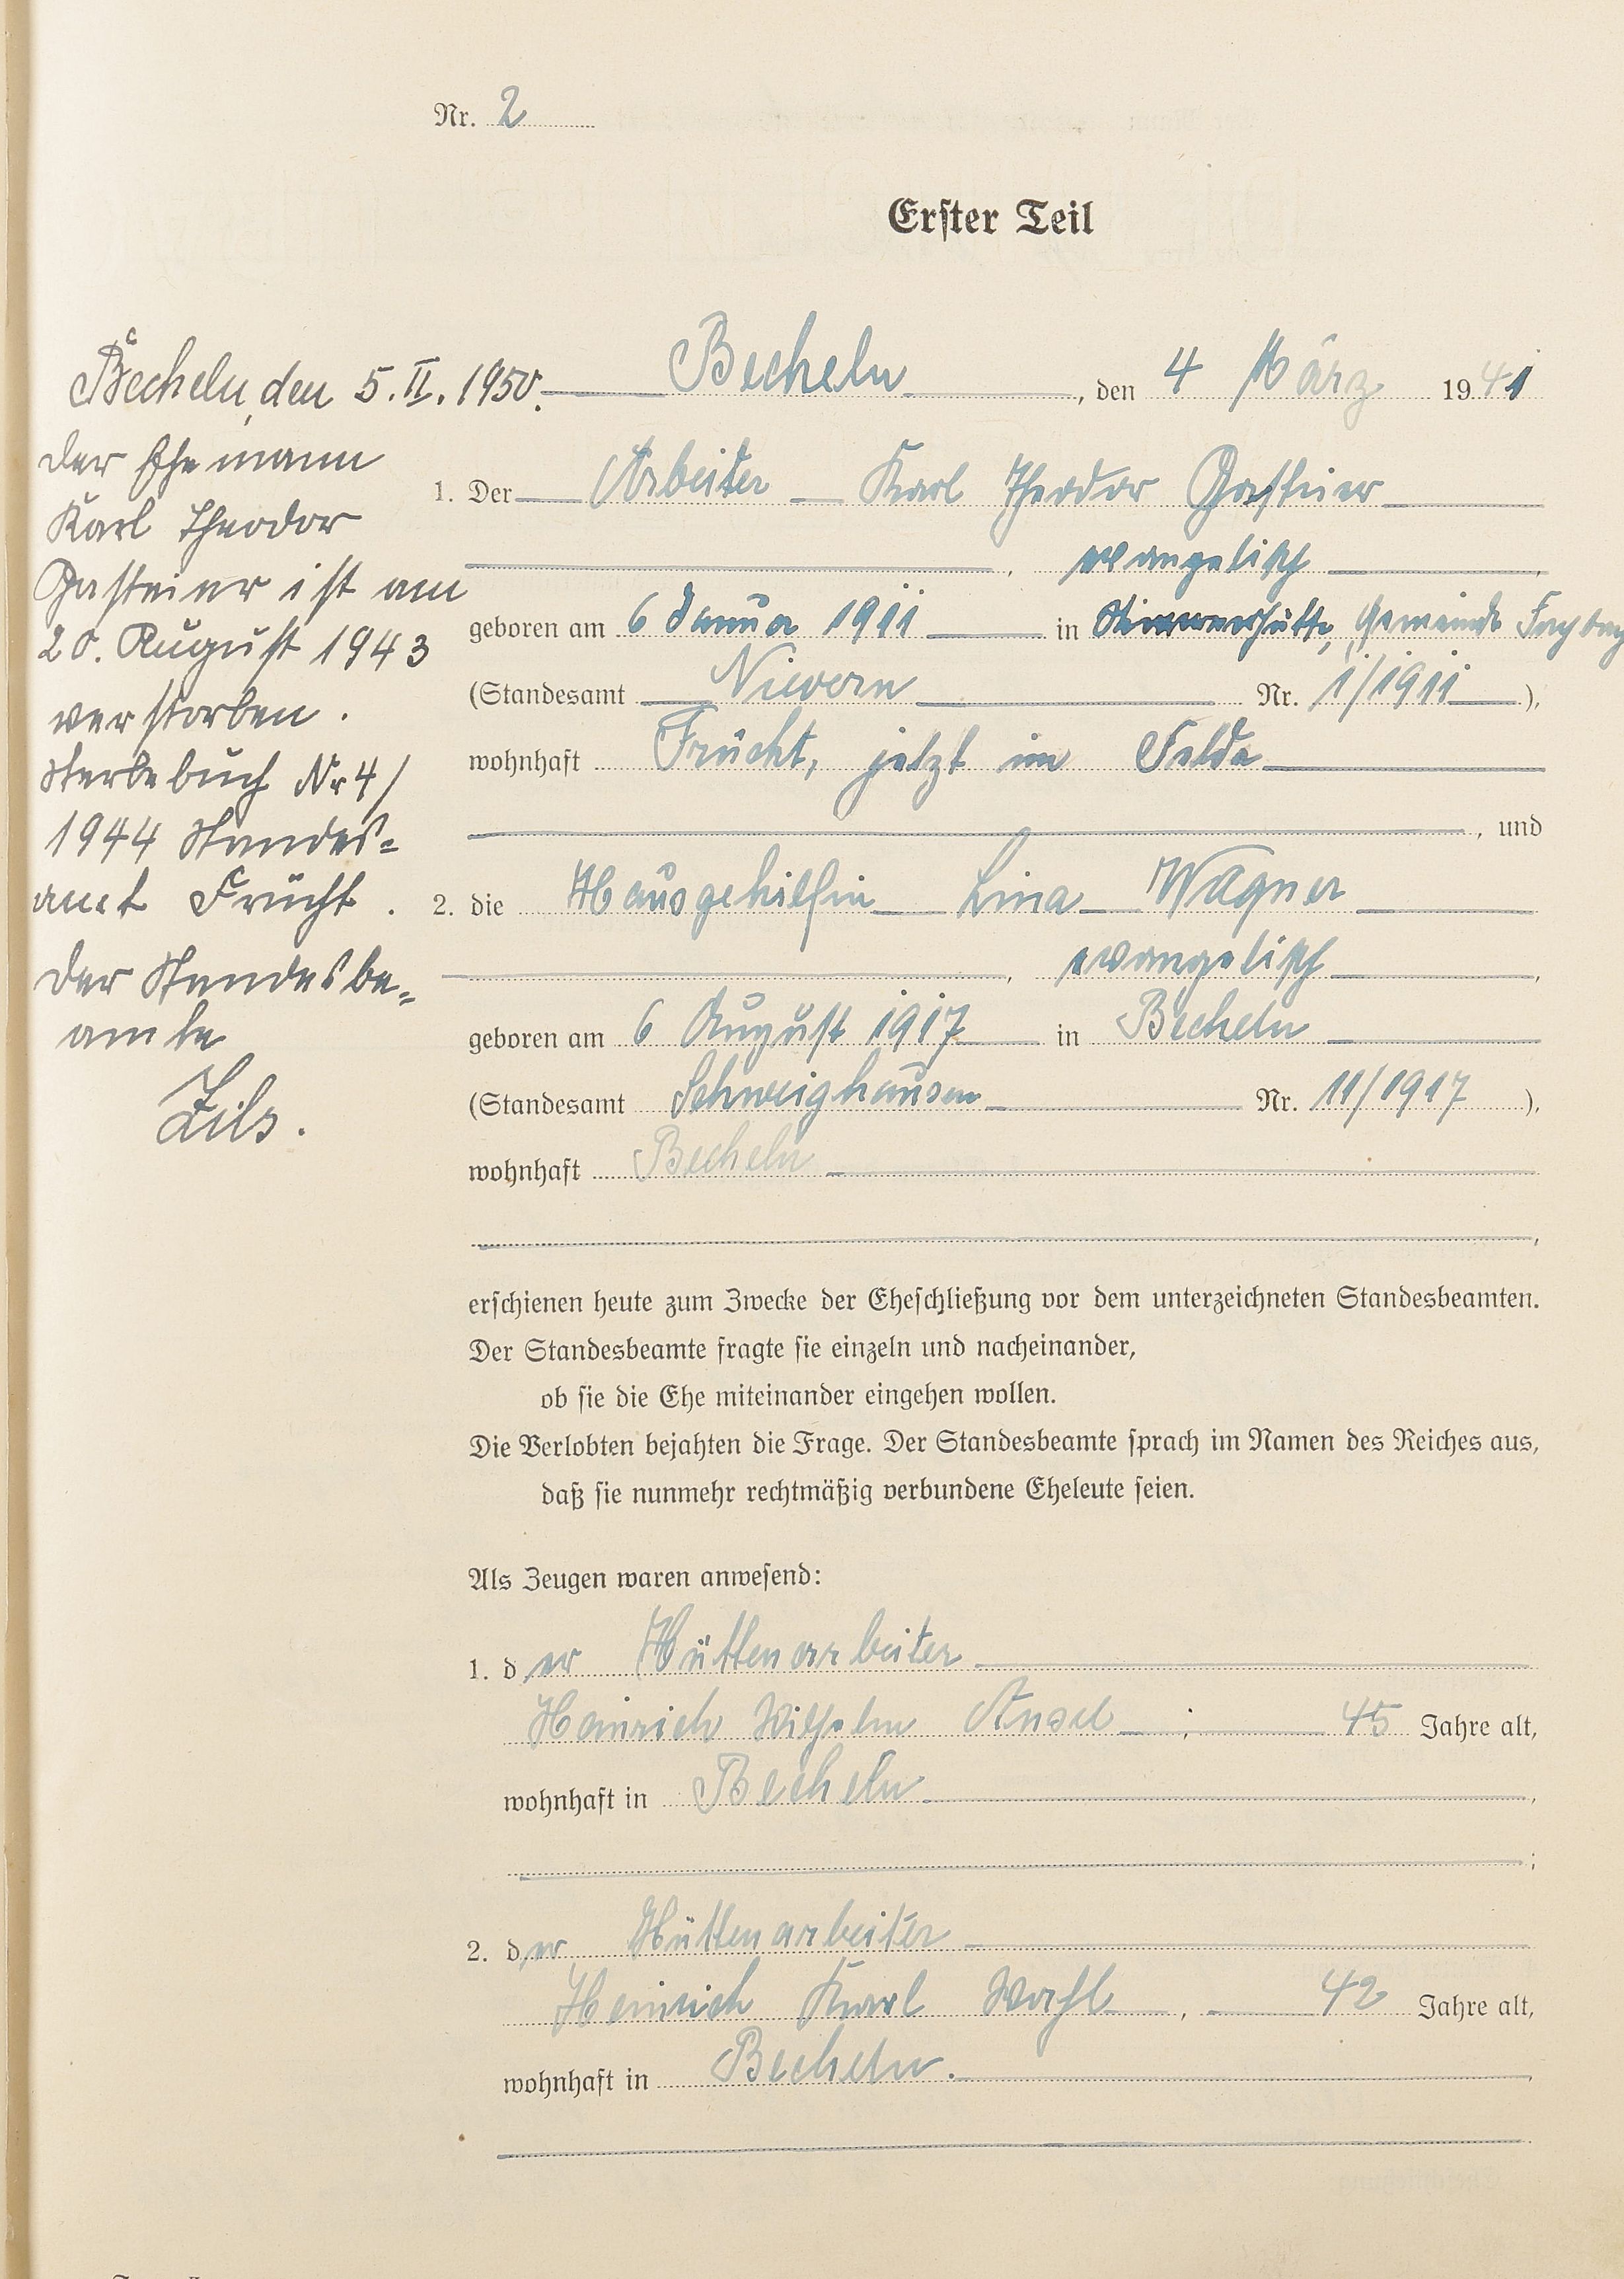 Nr. 2
Erster Teil
Becheln, den 4 März 1941
1. Der Arbeiter Karl Theodor Gasteier
, evangelisch,
geboren am 6 Janua 1911 in Gemeinde Fachbach
(Standesamt Nievern Nr. 1/1911),
wohnhaft Frücht, jetzt im Felde
, und
2. die Hausgehilfin Lina Wagner
, evangelisch,
geboren am 6 August 1917 in Becheln
(Standesamt Schweighausen Nr. 11/1917),
wohnhaft Becheln
,
erschienen heute zum Zwecke der Eheschließung vor dem unterzeichneten Standesbeamten.
Der Standesbeamte fragte sie einzeln und nacheinander,
ob sie die Ehe miteinander eingehen wollen.
Die Verlobten bejahten die Frage. Der Standesbeamte sprach im Namen des Reiches aus,
daß sie nunmehr rechtmäßig verbundene Eheleute seien.
Als Zeugen waren anwesend:
1. der Hüttenarbeiter
Heinrich Wilhelm Ansel, 45 Jahre alt,
wohnhaft in Becheln,
;
2. der Hüttenarbeiter
Heinrich Karl Wahl, 42 Jahre alt,
wohnhaft in Becheln.
Becheln, den 5. II. 1950.
Der Ehemann
Karl Theodor
Gasteier ist am
20. August 1943
verstorben.
Sterbebuch Nr 4/
1944 Standes=
amt Frücht.
Der Standesbe=
amte
Zils.